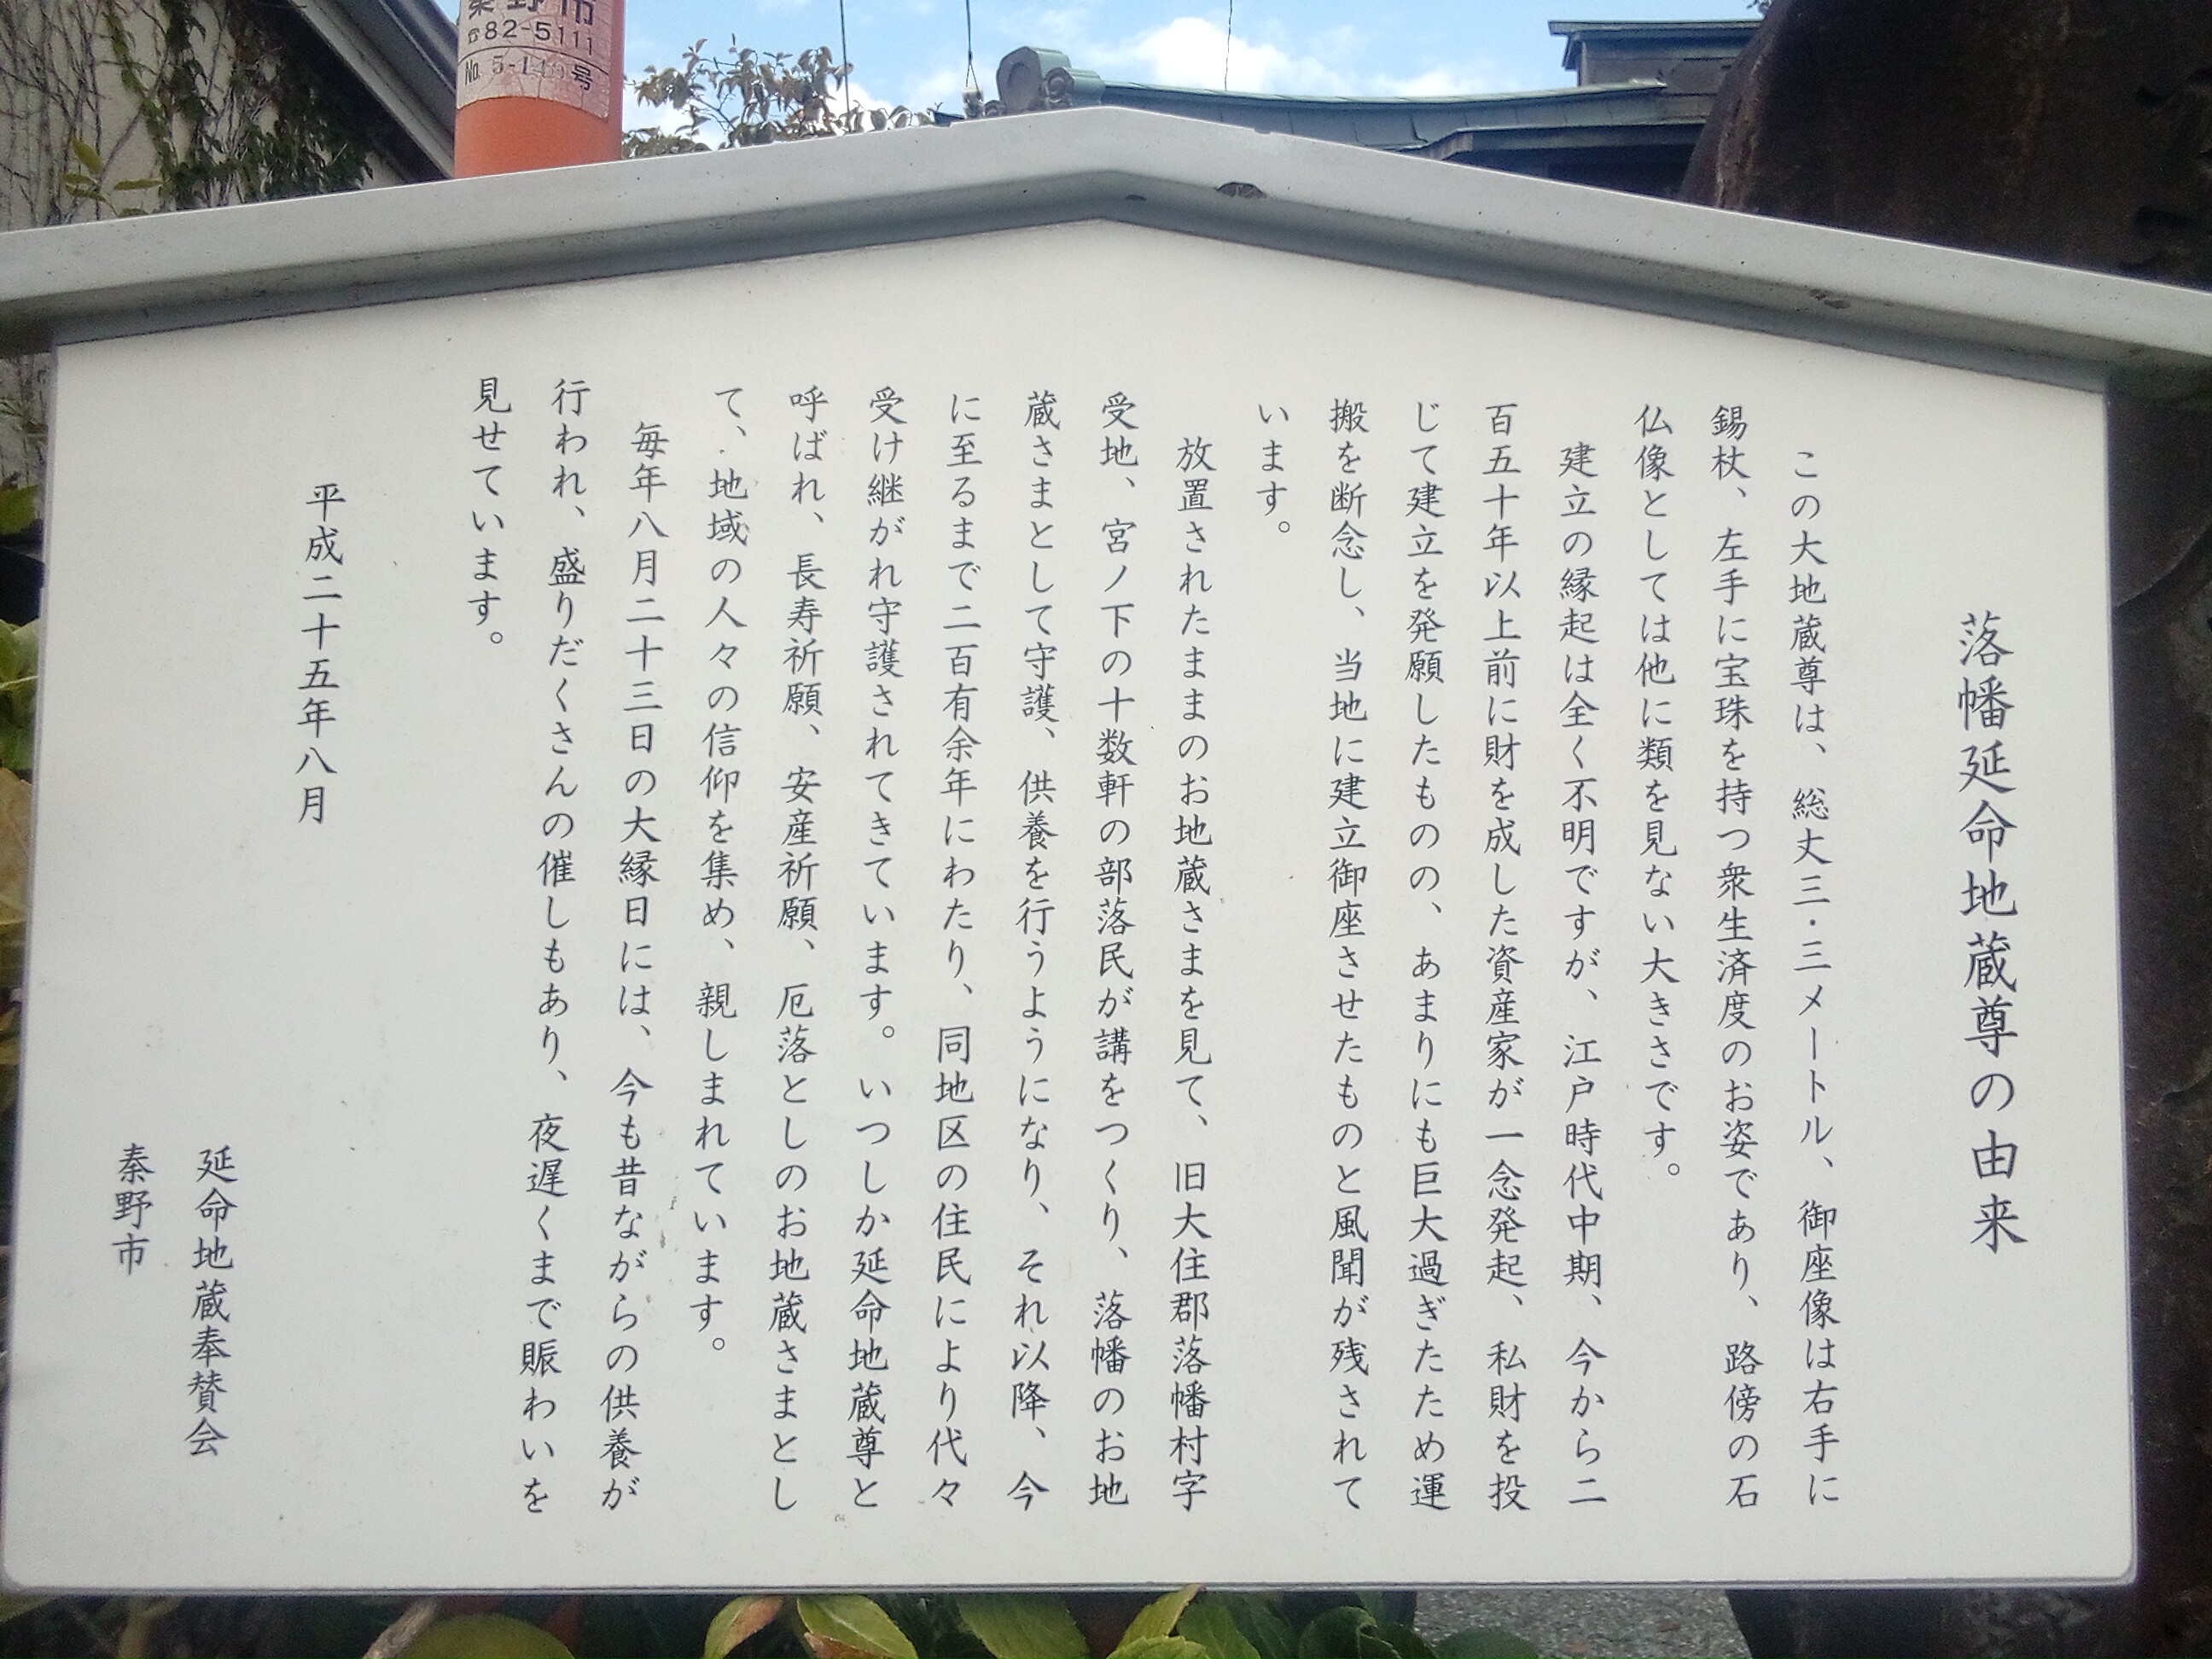 秦野市
☎82-5111
No. 5-149号
落幡延命地蔵尊の由来
この大地蔵尊は、総丈三・三メートル、御座像は右手に
錫杖、左手に宝珠を持つ衆生済度のお姿であり、路傍の石
仏像としては他に類を見ない大きさです。
建立の縁起は全く不明ですが、江戸時代中期、今から二
百五十年以上前に財を成した資産家が一念発起、私財を投
じて建立を発願したものの、あまりにも巨大過ぎたため運
搬を断念し、当地に建立御座させたものと風聞が残されて
います。
放置されたままのお地蔵さまを見て、旧大住郡落幡村字
受地、宮ノ下の十数軒の部落民が講をつくり、落幡のお地
蔵さまとして守護、供養を行うようになり、それ以降、今
に至るまで二百有余年にわたり、同地区の住民により代々
受け継がれ守護されてきています。いつしか延命地蔵尊と
呼ばれ、長寿祈願、安産祈願、厄落としのお地蔵さまとし
て、地域の人々の信仰を集め、親しまれています。
毎年八月二十三日の大縁日には、今も昔ながらの供養が
行われ、盛りだくさんの催しもあり、夜遅くまで賑わいを
見せています。
平成二十五年八月
延命地蔵奉賛会
秦野市